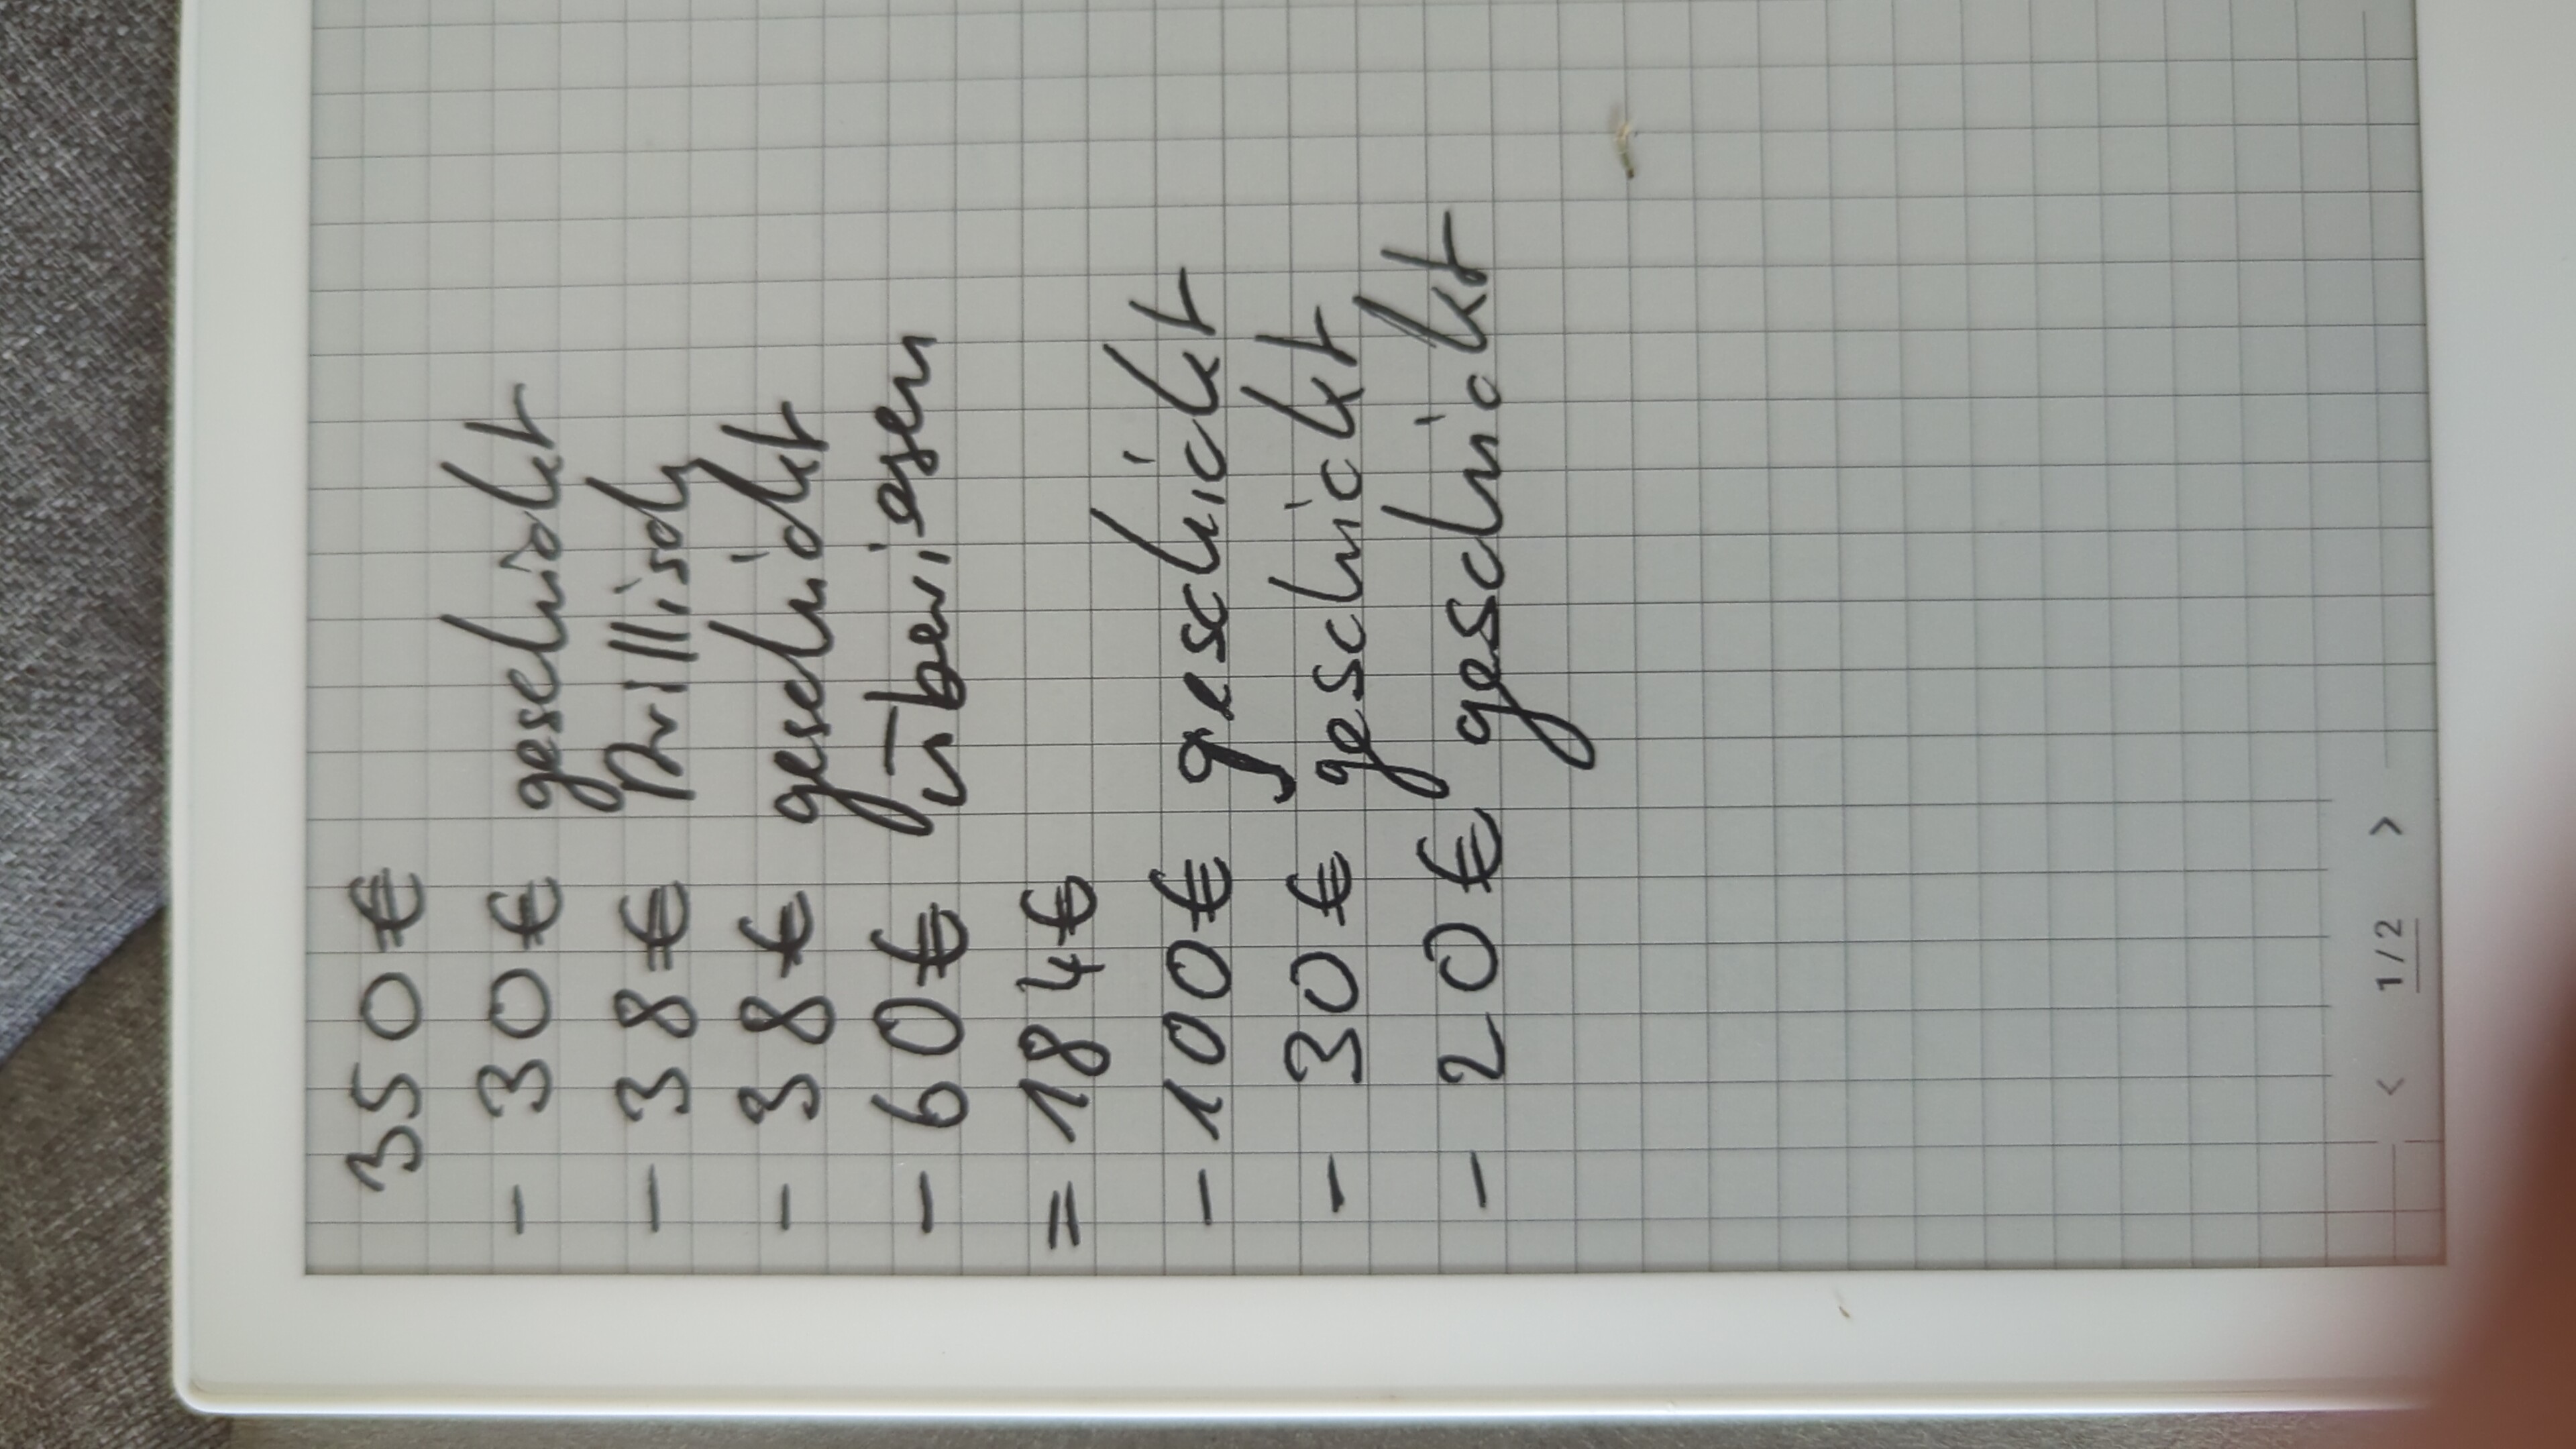 350€
- 30€ geschickt
- 38€ Drillisch
- 38€ geschickt
- 60€ überwiesen
= 184€
- 100€ geschickt
- 30€ geschickt
- 20€ geschickt
< 1/2 >